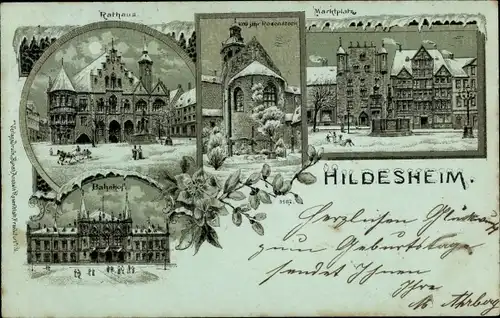 Rathaus.
1000 jähr. Rosenstock
Marktplatz.
Bahnhof.
HILDESHEIM.
Herzlichen Glückw.
zum Geburtstage
sendet Ihnen
Ihre
M. Ahrberg